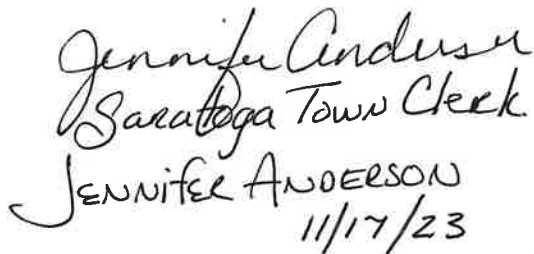 Jennifer Anderson
Saratoga Town Clerk
JENNIFER ANDERSON
11/17/23